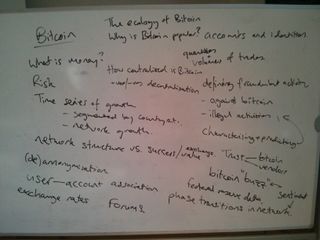 The ecology of Bitcoin
Bitcoin
Why is Bitcoin popular?
accounts and identities.
What is money?
quantities
volumes of trades
How centralized is Bitcoin
Risk
decentralisation
defining fraudulent activity
- against bitcoin
- illegal activities
Time series of growth
- segmented by country etc.
- network growth.
characterising + predicting
network structure vs. success/value
exchange
Trust
bitcoin
vendors
(de)anonymisation
bitcoin "buzz"
sentiment
user—account association
federal reserve data
exchange rates
Forums
phase transitions in network.